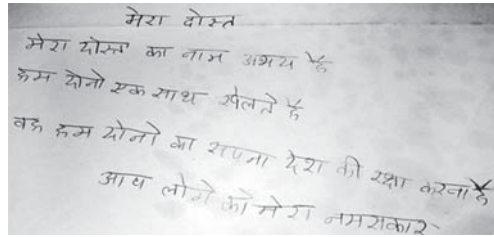 मेरा दोस्त
मेरा दोस्त का नाम अभय है
हम दोनो एक साथ खेलते है
वह हम दोनो का सपना देश की रक्षा करना है
आप लोगो को मेरा नमसकार